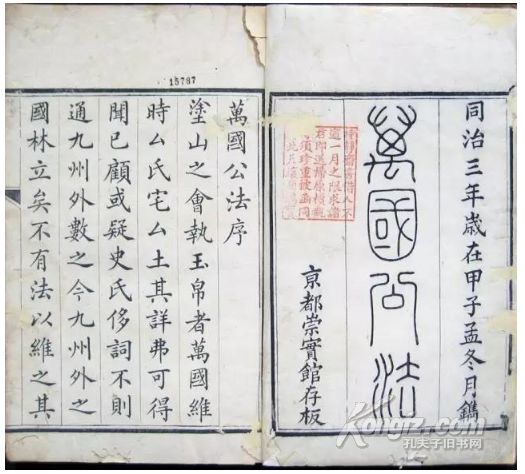 同治三年歲在甲子孟冬月鐫
萬國公法
亰都崇實館存板
書借人不
一月之限求諸
君即送歸原
須珍重
15787
萬國公法序
塗山之會執玉帛者萬國維
時厶氏宅厶土其詳弗可得
聞已顧或疑史氏侈詞不則
通九州外數之今九州外之
國林立矣不有法以維之其
Kongfz.com
孔夫子旧书网